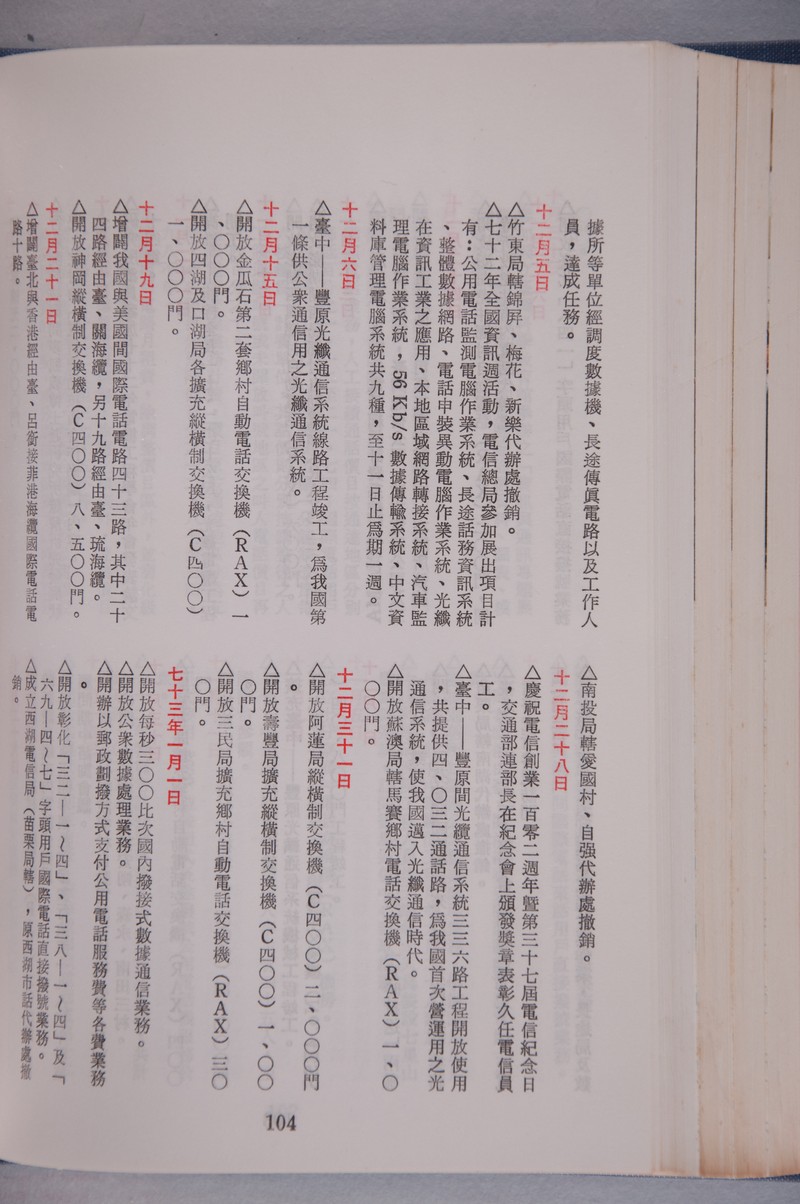 據所等單位經調度數據機、長途傳眞電路以及工作人
員，達成任務。
十二月五日
△竹東局轄錦屛、梅花、新樂代辦處撤銷。
△七十二年全國資訊週活動，電信總局參加展出項目計
有：公用電話監測電腦作業系統、長途話務資訊系統
、整體數據網路、電話申裝異動電腦作業系統、光纖
在資訊工業之應用、本地區域網路轉接系統、汽車監
理電腦作業系統，56 Kb/s 數據傳輸系統、中文資
料庫管理電腦系統共九種，至十一日止爲期一週。
十二月六日
△臺中——豐原光纖通信系統線路工程竣工，爲我國第
一條供公衆通信用之光纖通信系統。
十二月十五日
△開放金瓜石第二套鄉村自動電話交換機（RAX）一
、〇〇〇門。
△開放四湖及口湖局各擴充縱橫制交換機（C四〇〇）
一、〇〇〇門。
十二月十九日
△增闢我國與美國間國際電話電路四十三路，其中二十
四路經由臺、關海纜，另十九路經由臺、琉海纜。
△開放神岡縱橫制交換機（C四〇〇）八、五〇〇門。
十二月二十一日
△增闢臺北與香港經由臺、呂銜接菲港海纜國際電話電
路十路。
△南投局轄愛國村、自强代辦處撤銷。
十二月二十八日
△慶祝電信創業一百零二週年暨第三十七屆電信紀念日
，交通部連部長在紀念會上頒發獎章表彰久任電信員
工。
△臺中——豐原間光纜通信系統三三六路工程開放使用
，共提供四、〇三二通話路，爲我國首次營運用之光
通信系統，使我國邁入光纖通信時代。
△開放蘇澳局轄馬賽鄉村電話交換機（RAX）一、〇
〇〇門。
十二月三十一日
△開放阿蓮局縱橫制交換機（C四〇〇）二、〇〇〇門
。
△開放壽豐局擴充縱橫制交換機（C四〇〇）一、〇〇
〇門。
△開放三民局擴充鄉村自動電話交換機（RAX）三〇
〇門。
七十三年一月一日
△開放每秒三〇〇比次國內撥接式數據通信業務。
△開放公衆數據處理業務。
△開辦以郵政劃撥方式支付公用電話服務費等各費業務
。
△開放彰化「三二—一～四」、「三八—一～四」及「
六九—四～七」字頭用戶國際電話直接撥號業務。
△成立西湖電信局（苗栗局轄），原西湖市話代辦處撤
銷。
104